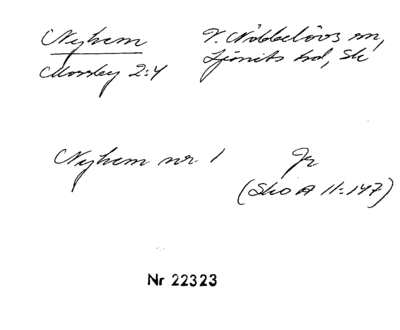 Nyhem V. Nöbbelövs sn,
Mossby 2:4 Ljunits hd, Sk
Nyhem nr. 1 Jr
(Sko A 11:147)
Nr 22323